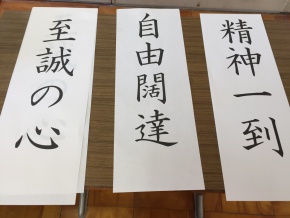 精神一到
自由闊達
至誠の心